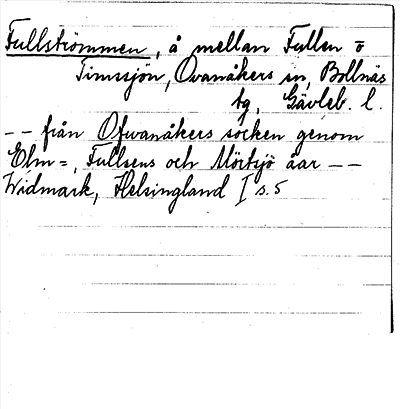 Fullströmmen, å mellan Fullen o
Timssjön, Ovanåkers sn, Bollnäs
tg, Gävleb. l.
-- från Ofvanåkers socken genom
Elm=, Fullsens och Mörtsjö åar --
Widmark, Helsingland I s. 5